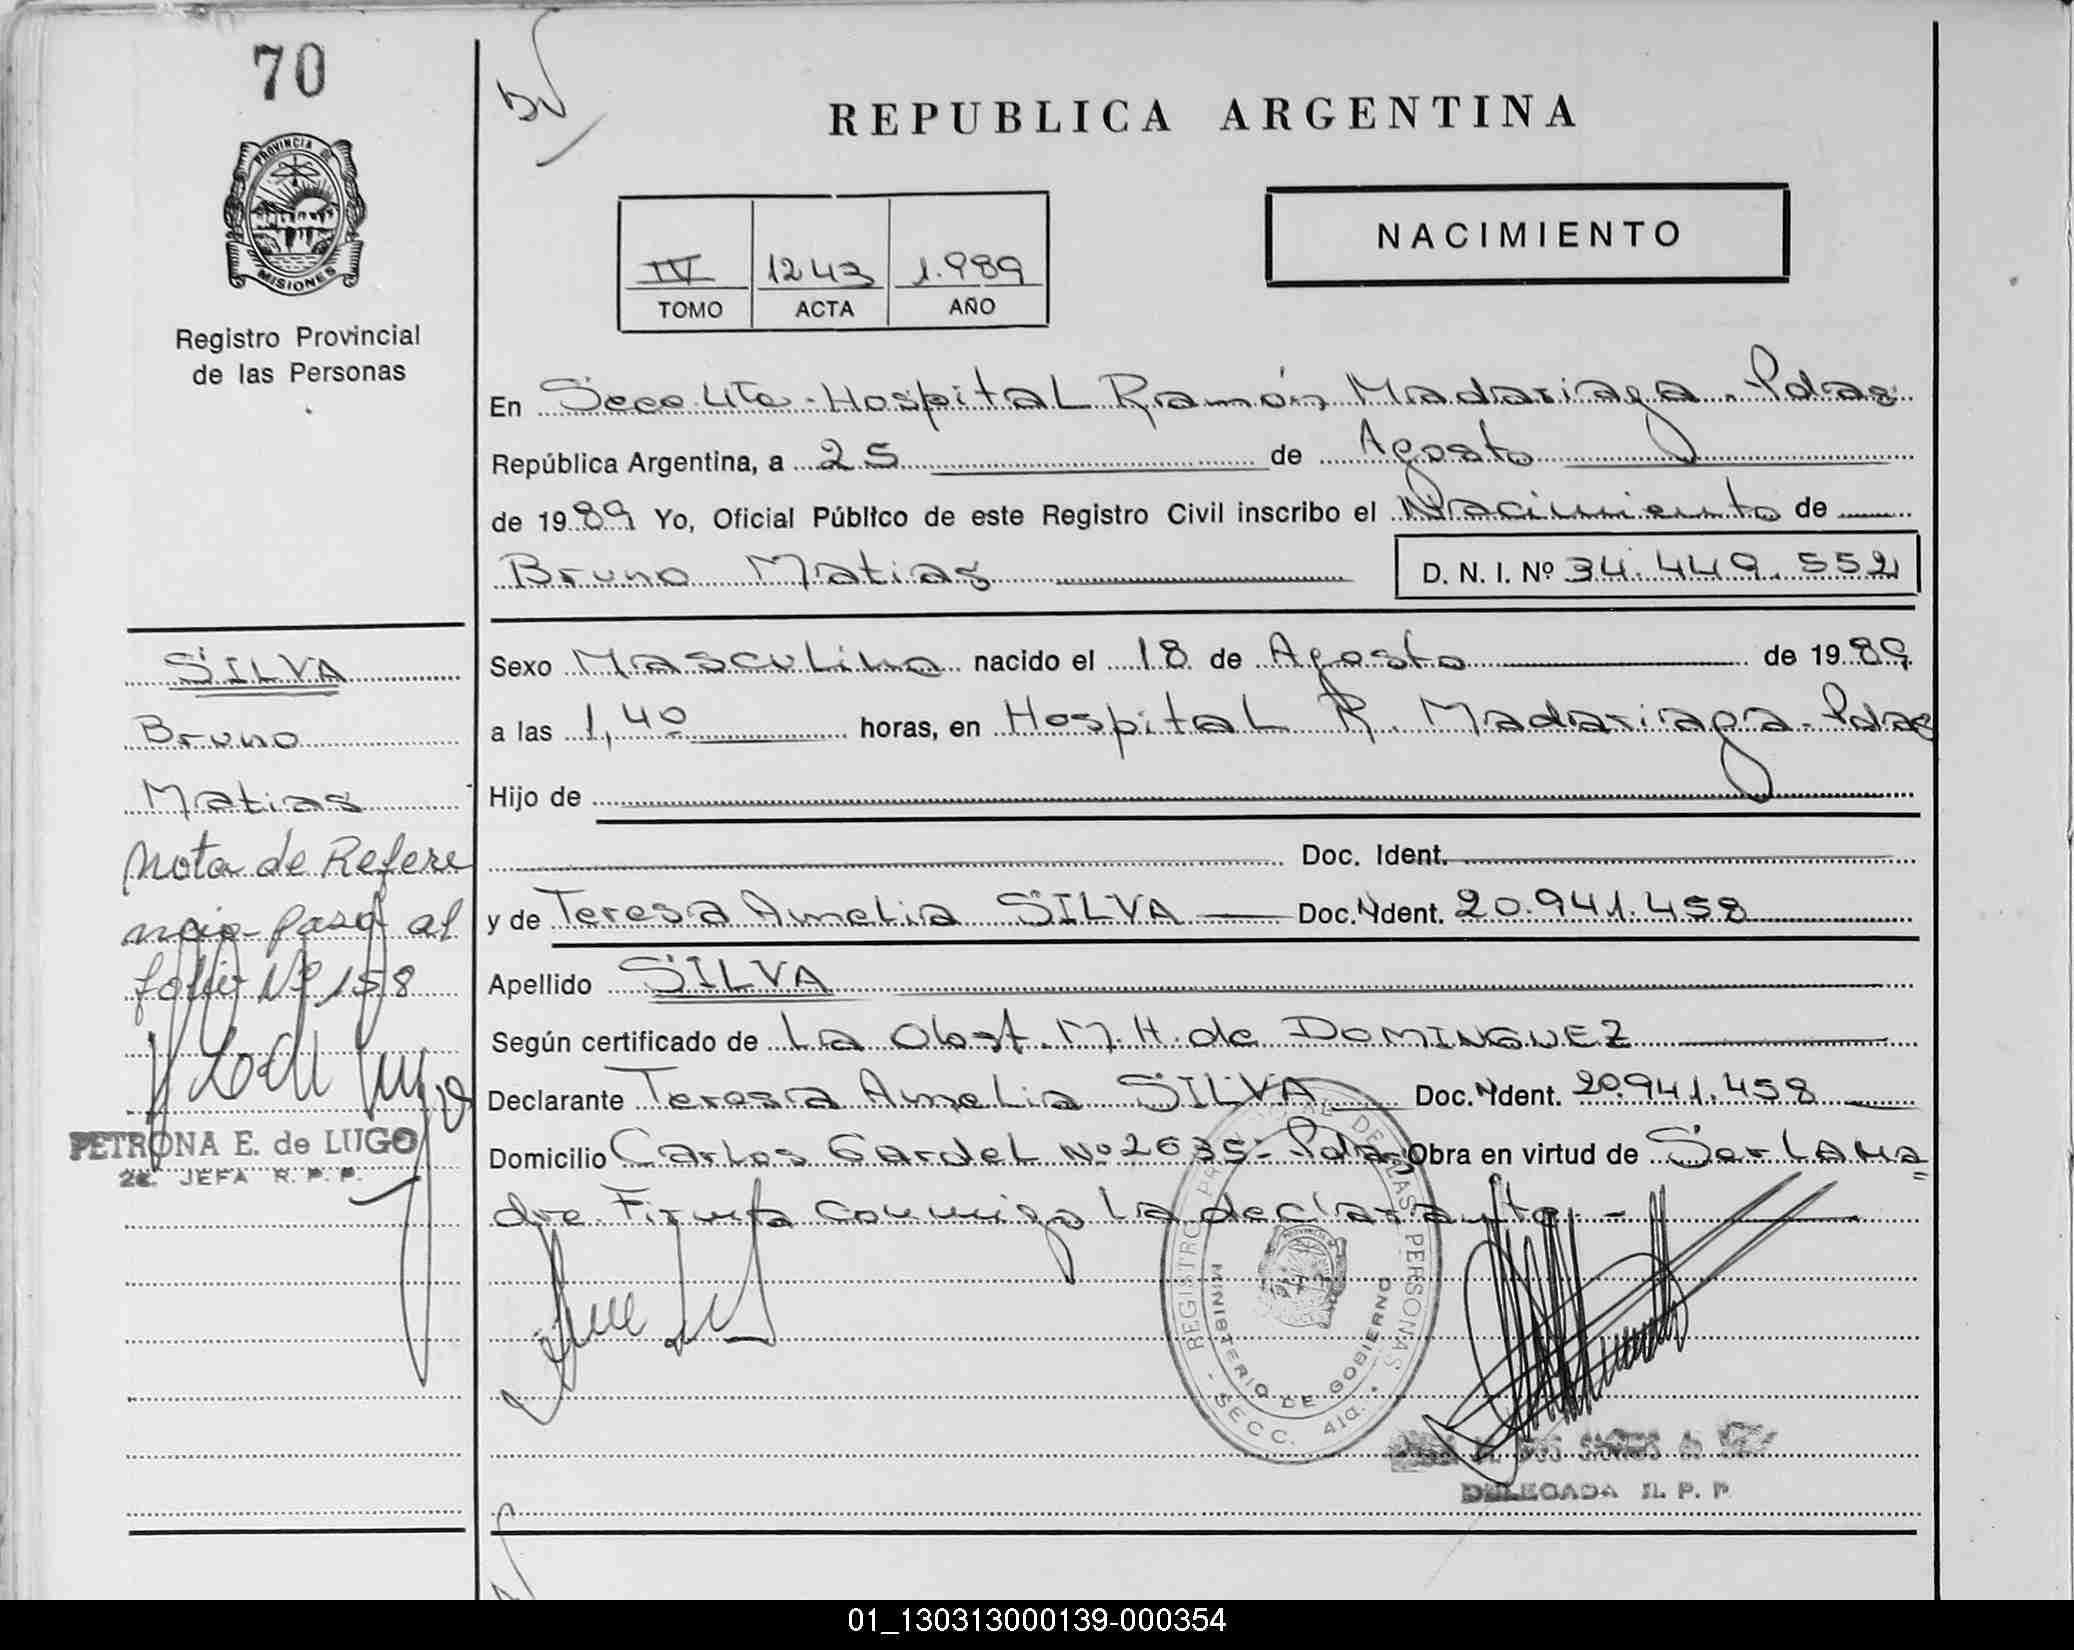 70
PROVINCIA DE
MISIONES
Registro Provincial
de las Personas
REPUBLICA ARGENTINA
NACIMIENTO
IV 1243 1.989
TOMO ACTA AÑO
En Secc 4ta - Hospital Ramón Madariaga - Pdas
República Argentina, a 25 de Agosto
de 1989 Yo, Oficial Público de este Registro Civil inscribo el Nacimiento de
Bruno Matias D. N. I. Nº 34.449.552
SILVA
Bruno
Matias
Nota de Refere
ncia paso al
folio Nº 158
PETRONA E. de LUGO
2a. JEFA R. P. P.
Sexo Masculino nacido el 18 de Agosto de 1989
a las 1,40 horas, en Hospital R. Madariaga - Pdas
Hijo de
Doc. Ident.
y de Teresa Amelia SILVA Doc. Ident. 20.941.458
Apellido SILVA
Según certificado de La Obst. M. H. de DOMINGUEZ
Declarante Teresa Amelia SILVA Doc. Ident. 20.941.458
Domicilio Carlos Gardel Nº 2635 - Pdas Obra en virtud de Ser La Ma=
dre. Firma conmigo la declarante -
REGISTRO PROVINCIAL DE LAS PERSONAS
MINISTERIO DE GOBIERNO
- SECC. 41a. -
DELEGADA R. P. P.
01_130313000139-000354